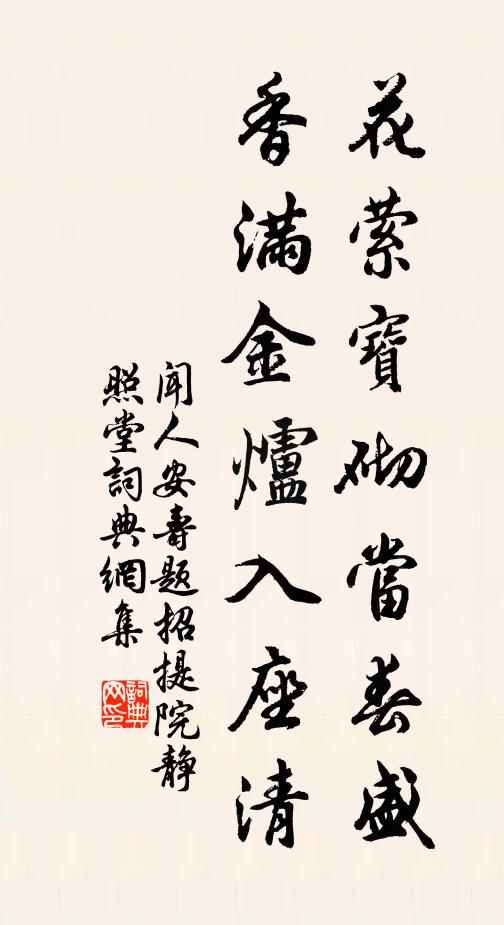 花萦寶砌當春盛
香滿金爐入座清
闻人安壽题招提院静
照堂詞典網集
詞典
网印